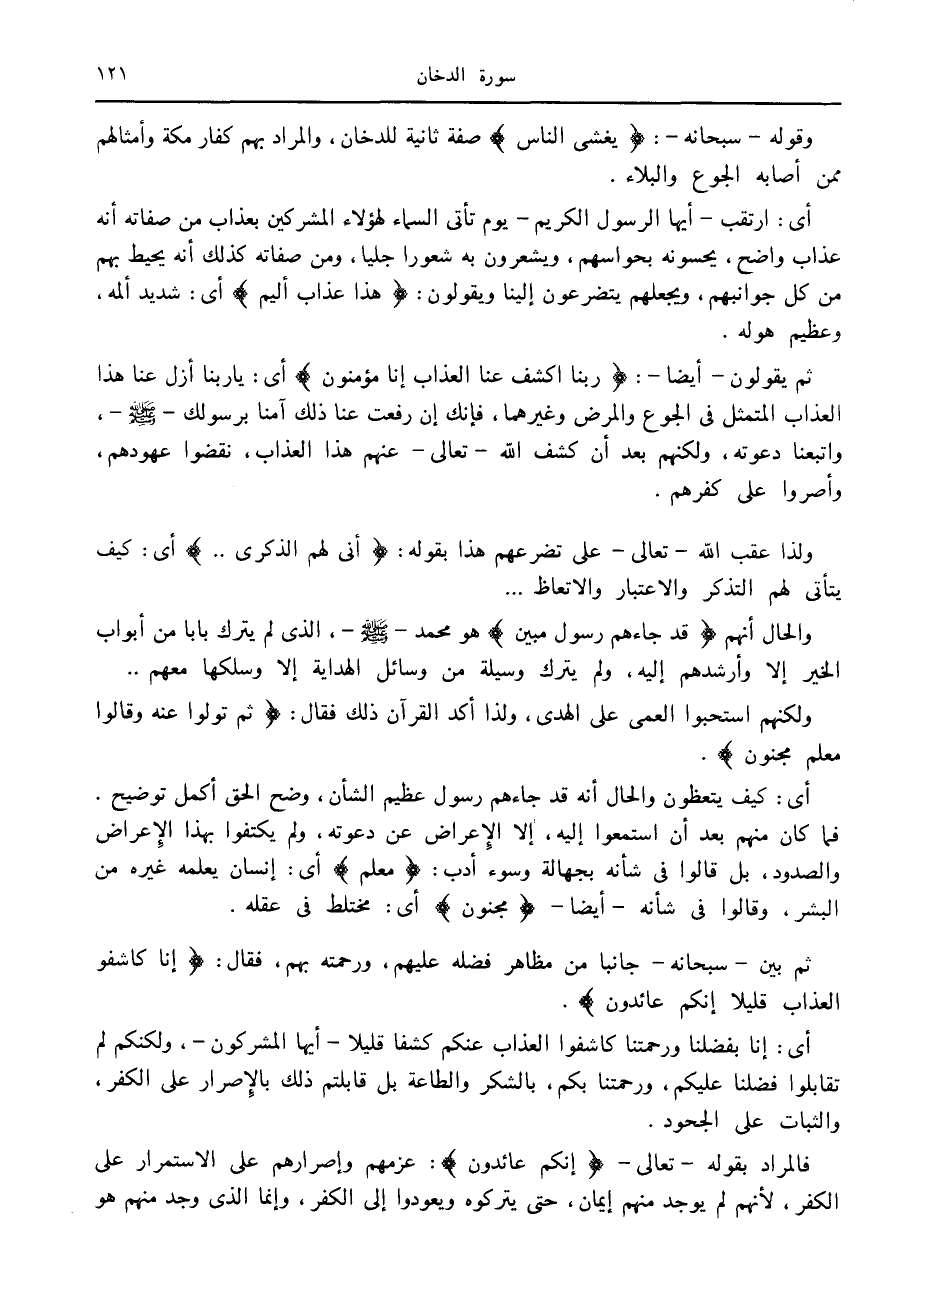 سورة الدخان ١٢١
وقوله – سبحانه – : ﴿ يغشى الناس ﴾ صفة ثانية للدخان ، والمراد بهم كفار مكة وأمثالهم
ممن أصابه الجوع والبلاء .
أى : ارتقب – أيها الرسول الكريم – يوم تأتى السماء لهؤلاء المشركين بعذاب من صفاته أنه
عذاب واضح ، يحسونه بحواسهم ، ويشعرون به شعورا جليا ، ومن صفاته كذلك أنه يحيط بهم
من كل جوانبهم ، ويجعلهم يتضرعون إلينا ويقولون : ﴿ هذا عذاب أليم ﴾ أى : شديد ألمه ،
وعظيم هوله .
ثم يقولون – أيضا – : ﴿ ربنا اكشف عنا العذاب إنا مؤمنون ﴾ أى : ياربنا أزل عنا هذا
العذاب المتمثل فى الجوع والمرض وغيرهما ، فإنك إن رفعت عنا ذلك آمنا برسولك – ﷺ – ،
واتبعنا دعوته ، ولكنهم بعد أن كشف الله – تعالى – عنهم هذا العذاب ، نقضوا عهودهم ،
وأصروا على كفرهم .
ولذا عقب الله – تعالى – على تضرعهم هذا بقوله : ﴿ أنى لهم الذكرى .. ﴾ أى : كيف
يتأتى لهم التذكر والاعتبار والاتعاظ ...
والحال أنهم ﴿ قد جاءهم رسول مبين ﴾ هو محمد – ﷺ – ، الذى لم يترك بابا من أبواب
الخير إلا وأرشدهم إليه ، ولم يترك وسيلة من وسائل الهداية إلا وسلكها معهم ..
ولكنهم استحبوا العمى على الهدى ، ولذا أكد القرآن ذلك فقال : ﴿ ثم تولوا عنه وقالوا
معلم مجنون ﴾ .
أى : كيف يتعظون والحال أنه قد جاءهم رسول عظيم الشأن ، وضح الحق أكمل توضيح .
فما كان منهم بعد أن استمعوا إليه ، إلا الإعراض عن دعوته ، ولم يكتفوا بهذا الإعراض
والصدود ، بل قالوا فى شأنه بجهالة وسوء أدب : ﴿ معلم ﴾ أى : إنسان يعلمه غيره من
البشر ، وقالوا فى شأنه – أيضا – ﴿ مجنون ﴾ أى : مختلط فى عقله .
ثم بين – سبحانه – جانبا من مظاهر فضله عليهم ، ورحمته بهم ، فقال : ﴿ إنا كاشفو
العذاب قليلا إنكم عائدون ﴾ .
أى : إنا بفضلنا ورحمتنا كاشفوا العذاب عنكم كشفا قليلا – أيها المشركون – ، ولكنكم لم
تقابلوا فضلنا عليكم ، ورحمتنا بكم ، بالشكر والطاعة بل قابلتم ذلك بالإصرار على الكفر ،
والثبات على الجحود .
فالمراد بقوله – تعالى – ﴿ إنكم عائدون ﴾ : عزمهم وإصرارهم على الاستمرار على
الكفر ، لأنهم لم يوجد منهم إيمان ، حتى يتركوه ويعودوا إلى الكفر ، وإنما الذى وجد منهم هو